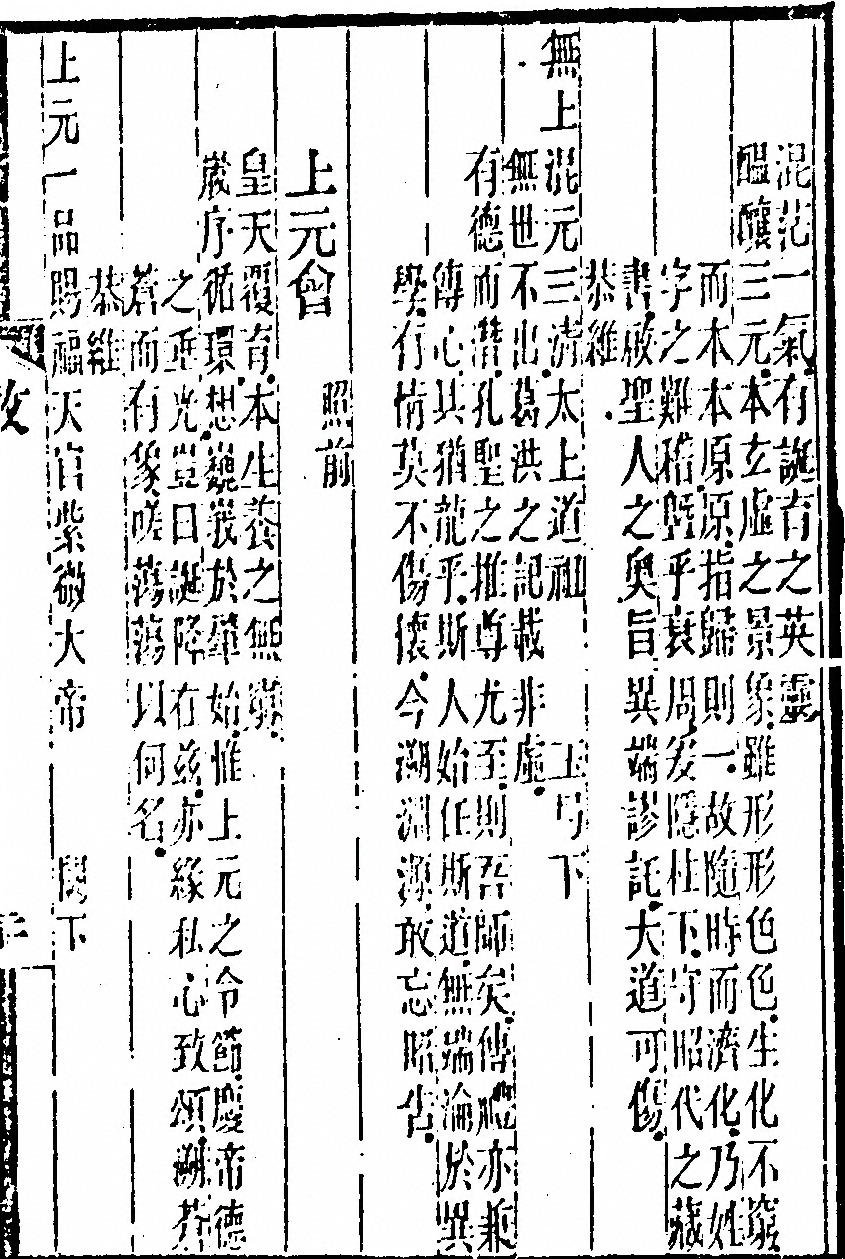 混茫一氣有誕育之英靈
醞釀三元本玄虛之景象雖形形色色生化不窮
而本本原原指歸則一故隨時而濟化乃姓
字之難稽曁乎衰周爰隱柱下守昭代之藏
書啟聖人之奧旨異端謬託大道可傷
恭維
無上混元三清太上道祖 玉号下
無世不出葛洪之記載非虛
有德而潛孔聖之推尊尤至則吾師矣傳聽亦兼
傳心其猶龍乎斯人始任斯道無端淪於異
學有情莫不傷懷今溯淵源敢忘昭告
上元會
照前
皇天覆育本生養之無窮
歲序循環想巍峩於肇始惟上元之令節慶帝德
之垂光豈曰誕降在兹亦緣私心致頌溯莽
蒼而有象嗟蕩蕩以何名
恭維
上元一品賜福天官紫微大帝 閣下